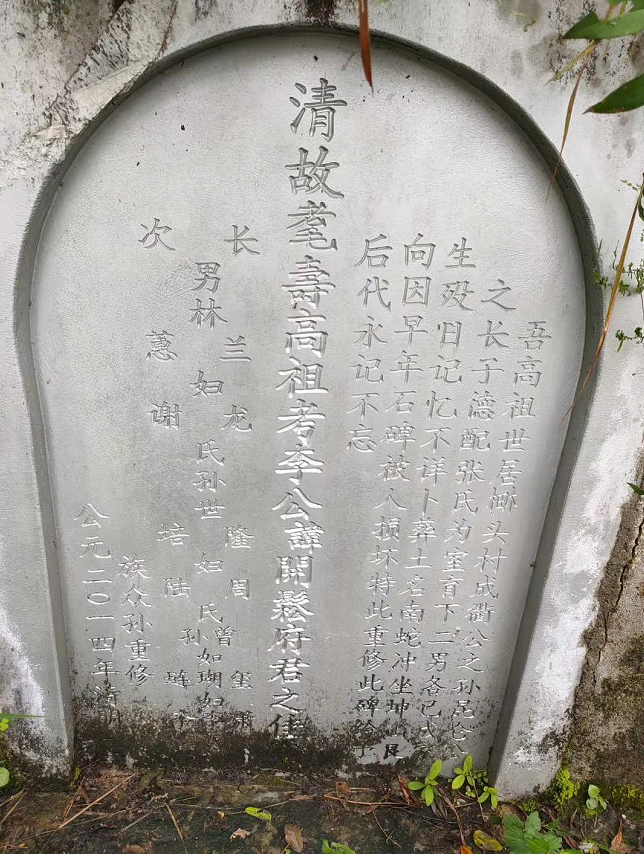 吾高祖世居栁头村成衢公之孙昆
之长子德配张氏为室育下二男各已成
生殁旧记忆不详卜葬土名南蛇冲坐坤艮
向因早年石碑被人损坏特此重修此碑
后代永记不忘
清故耄壽高祖考李公諱開鬆府君之佳
长 兰 龙 隆 周 曾 玺 萧
男林 妇 氏孙世 如 氏 如瑚如
孙 琏 李
次 蕙 谢 培 陆
族众孙重修
公元二〇一四年清明